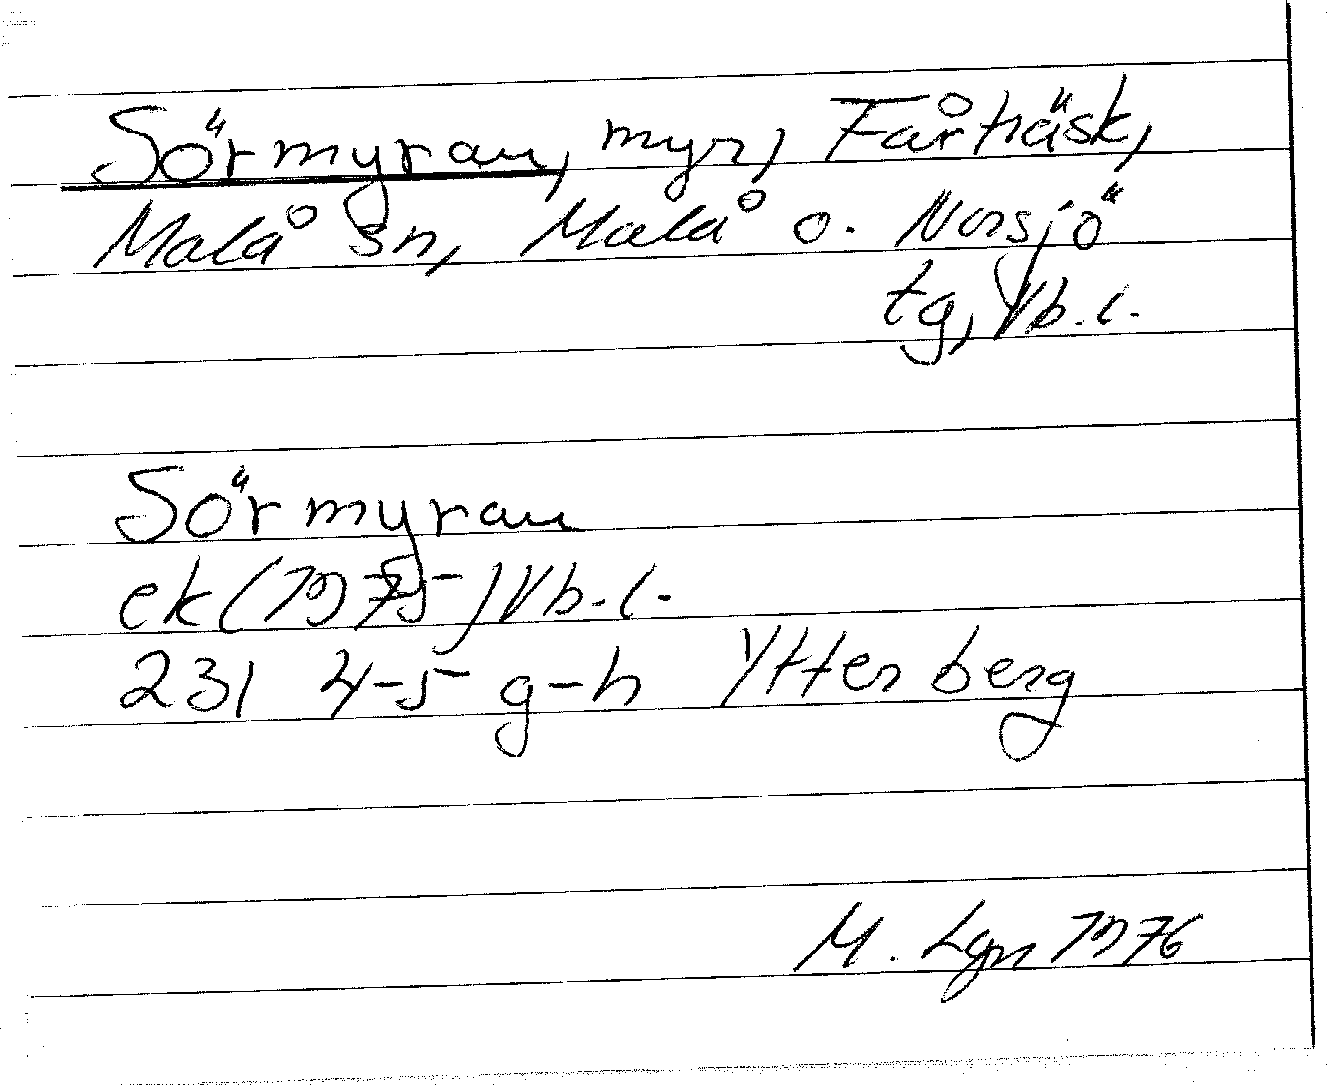 Sörmyran, myr, Fårträsk,
Malå sn, Malå o. Norsjö
tg, Vb. l.
Sörmyran
ek (1975) Vb. l.
231 4-5 g-h Ytterberg
M. Lgn 1976